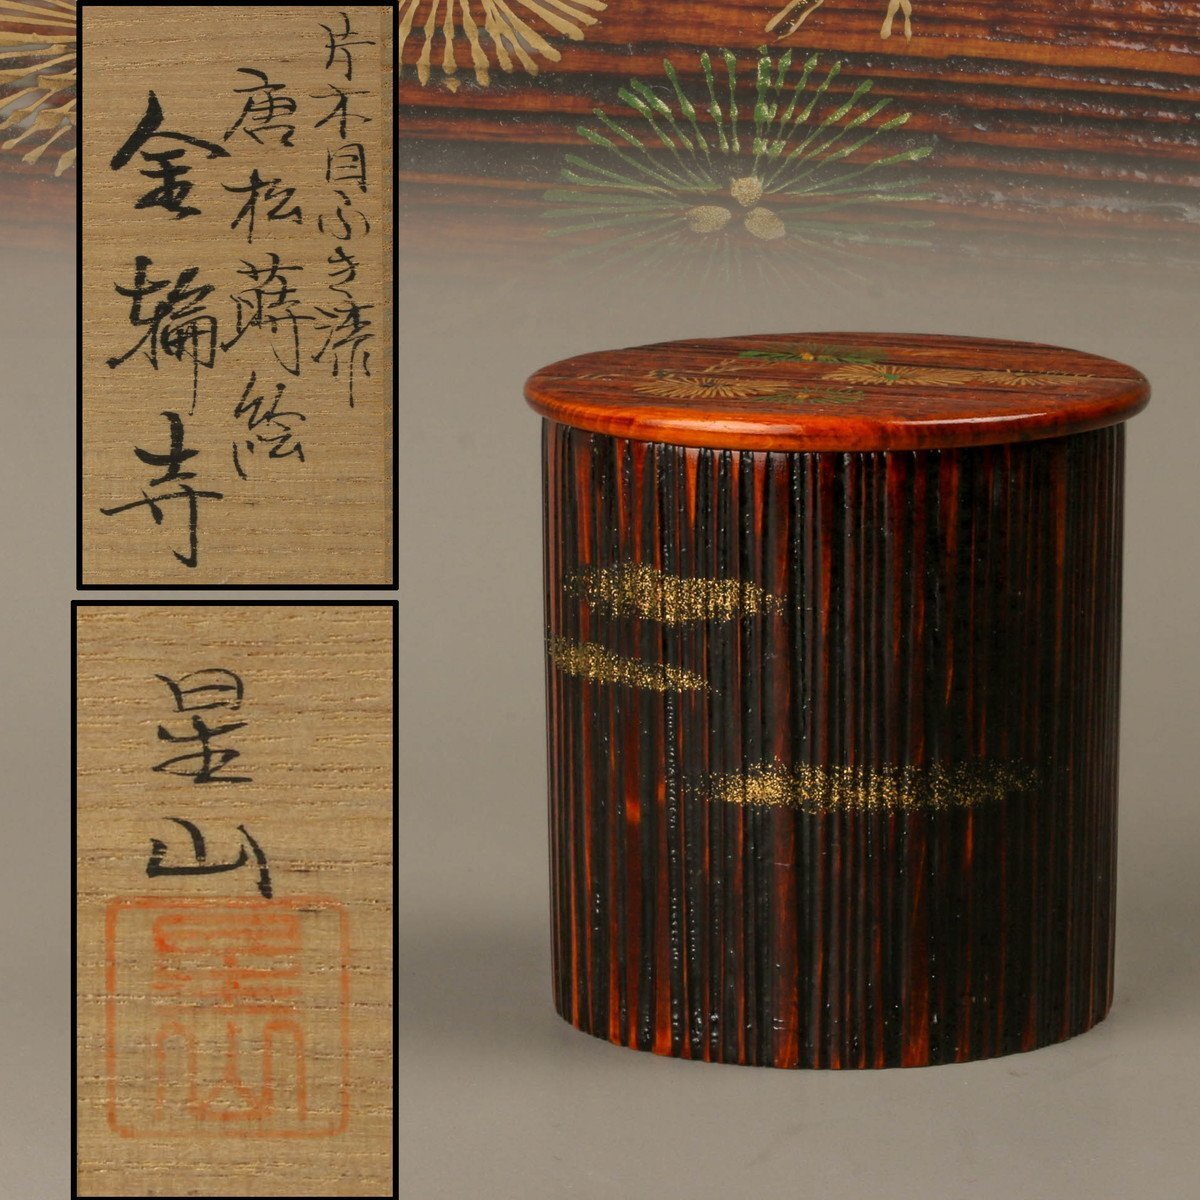 片木目ふき漆
唐松蒔絵
金輪寺
星山
星山